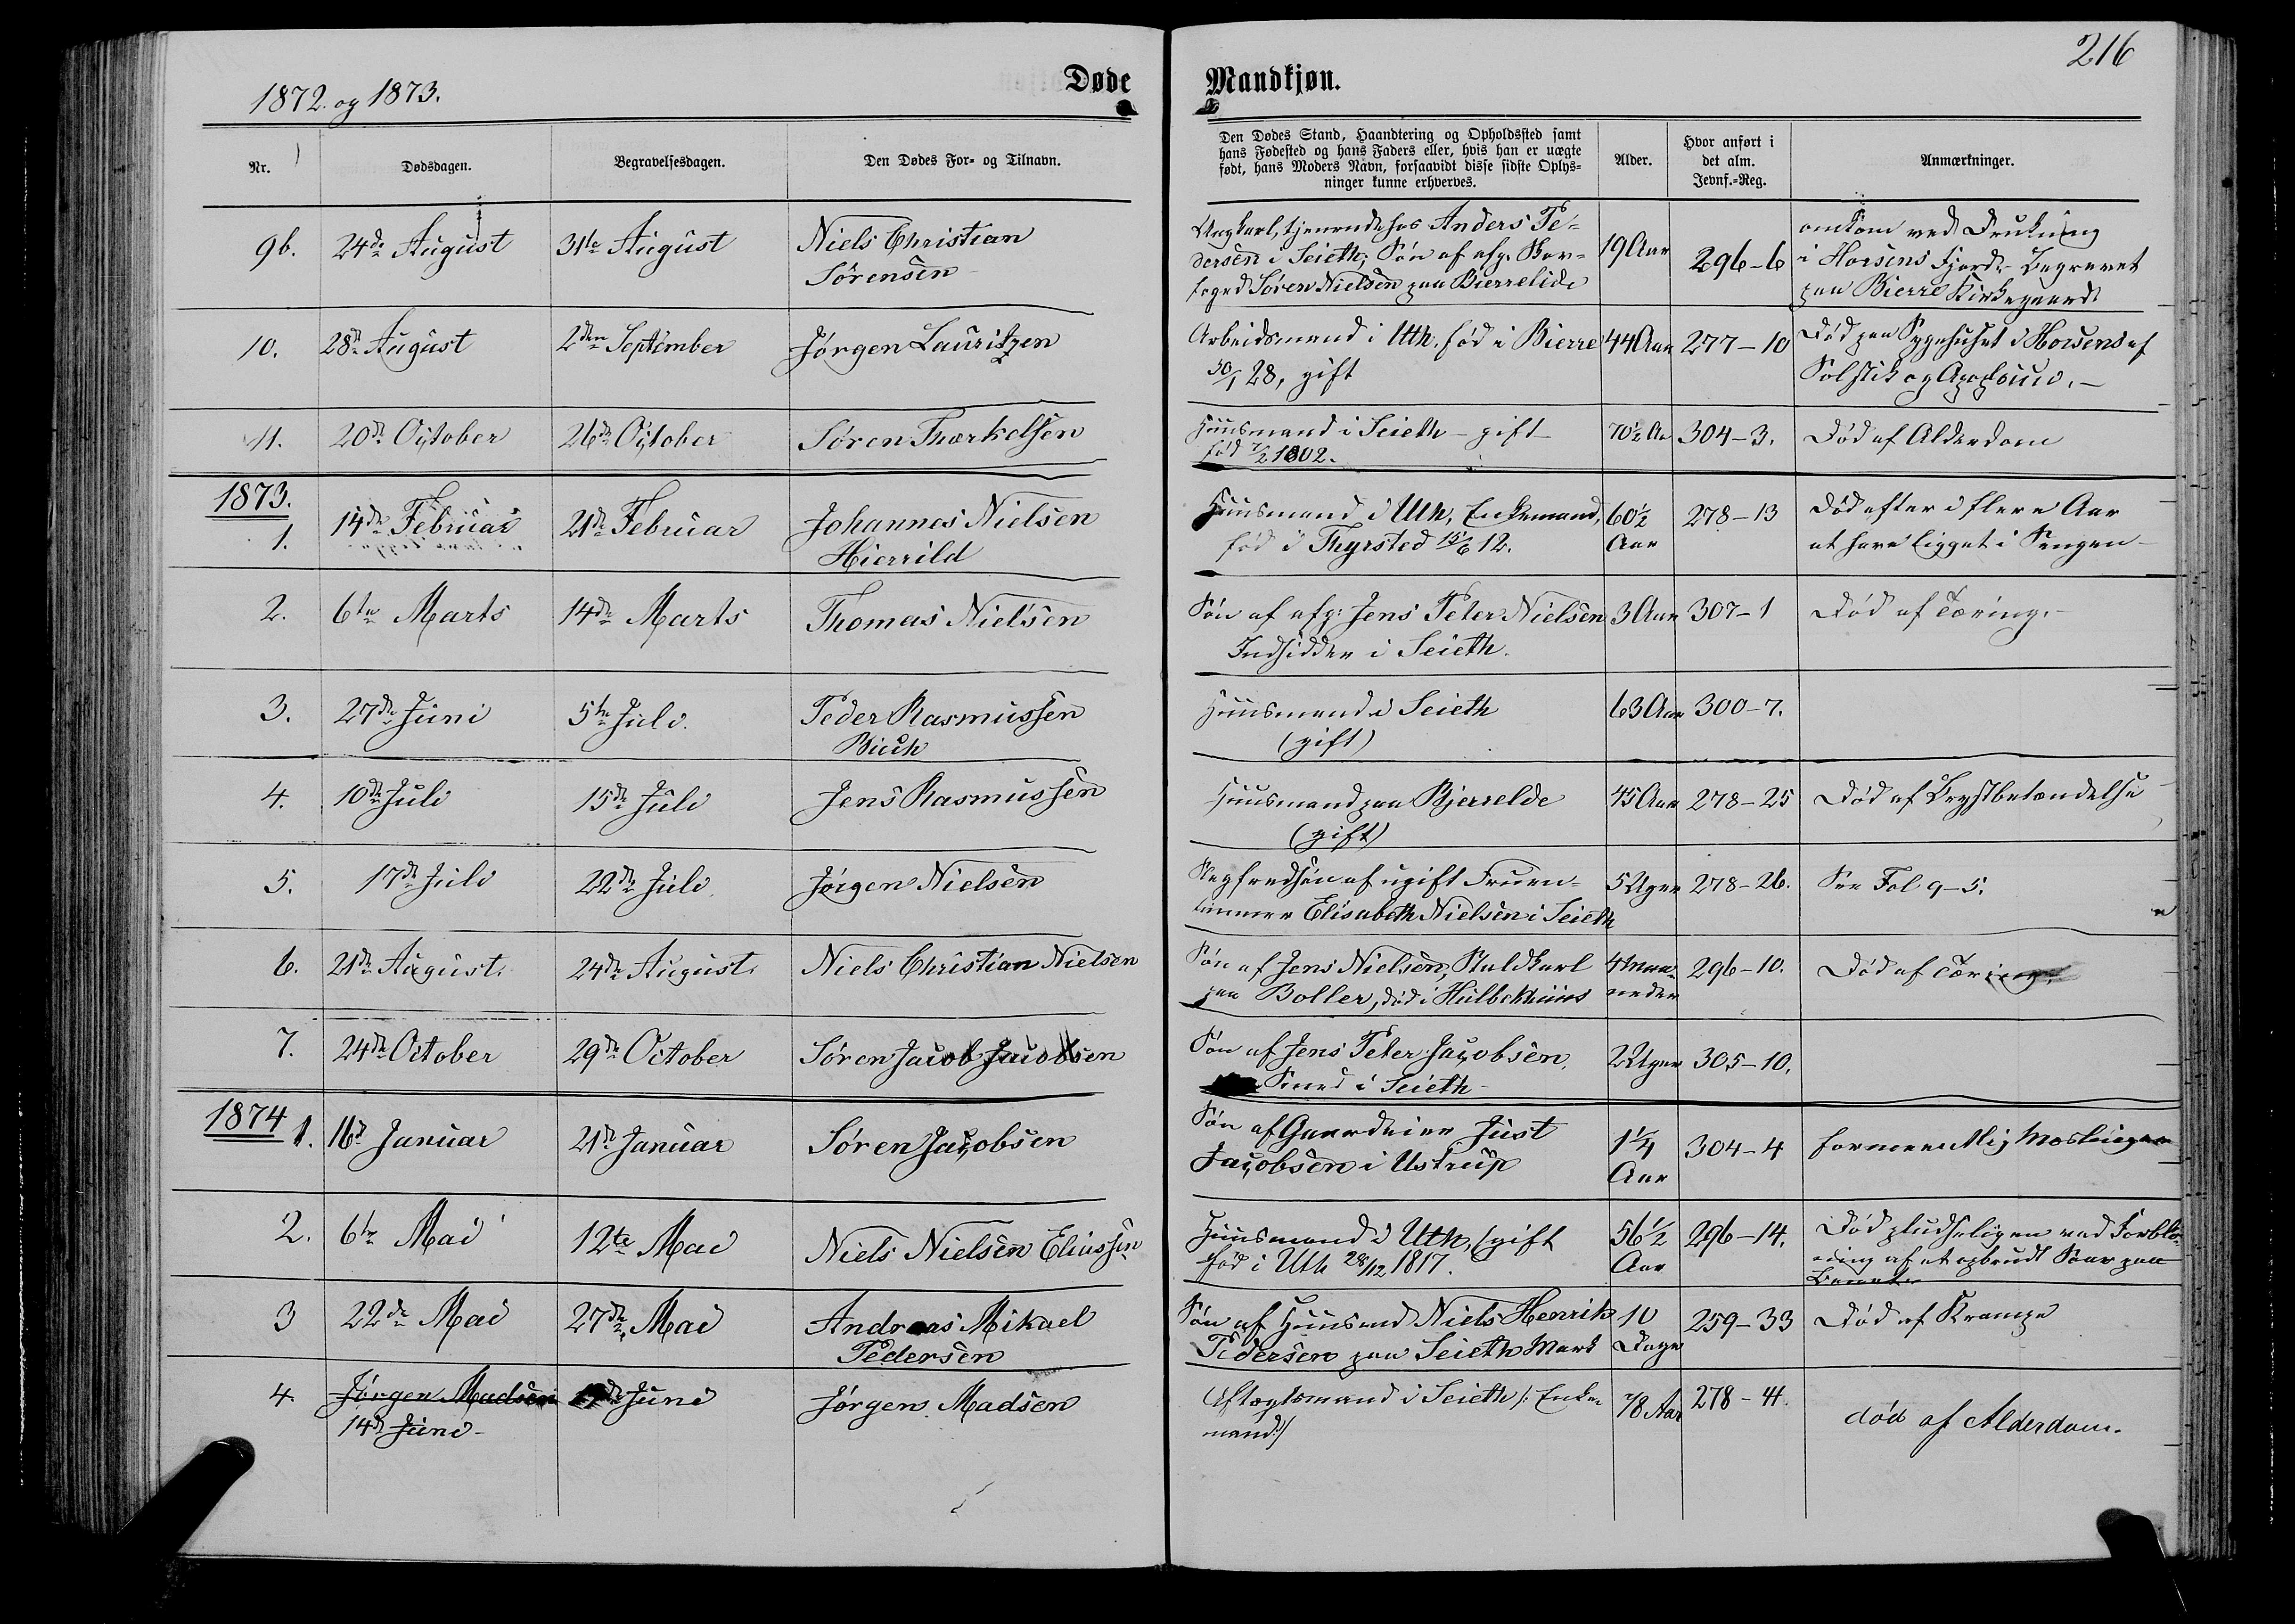 216
1872. og 1873.
Døde
Mandkjøn.
Nr.
Dødsdagen.
Begravelsesdagen.
Den Dødes For- og Tilnavn.
Den Dødes Stand, Haandtering og Opholdssted samt
hans Fødested og hans Faders eller, hvis han er uægte
født, hans Moders Navn, forsaavidt disse sidste Oplys-
ninger kunne erhverves.
Alder.
Hvor anført i
det alm.
Jevnf.-Reg.
Anmærkninger.
9b.
24de August
31te August
Niels Christian
Sørensen
Ungkarl, tjenende hos Anders Pe-
dersen i Seieth, Søn af afg.
Søren Nielsen paa Bierrelide
19 Aar
296-6
omkom ved Drukning
i Horsens Fjord. Begravet
paa Bierre Kirkegaard
10.
28de August
2den September
Jørgen Lauritzen
Arbeidsmand i Uth. fød i Bierre
30/1 28, gift
44 Aar
277-10
Død paa Sygehuset i Horsens af
Solstik og
11.
20de October
26de October
Søren Thorkelsen
Huusmand i Seieth - gift
fød 7/2 1802.
70½ Aa
304-3.
Død af Alderdom
1873.
1.
14de Februar
21de Februar
Johannes Nielsen
Hierrild
Huusmand i Uth, Enkemand,
fød i Thyrsted 15/6 12.
60½
Aar
278-13
Død efter i flere Aar
at have ligget i Sengen
2.
6te Marts
14de Marts
Thomas Nielsen
Søn af afg: Jens Peter Nielsen
Indsidder i Seieth.
3 Aar
307-1
Død af Tæring.
3.
27de Juni
5te Juli.
Peder Rasmussen
Buch
Huusmand i Seieth
(gift)
63 Aar
300-7.
4.
10de Juli
15de Juli
Jens Rasmussen
Huusmand paa Bjerrelde
(gift)
45 Aar
278-25
Død af Brystbetændelse
5.
17de Juli
22de Juli
Jørgen Nielsen
Slegfredsøn af ugift Fruen-
timmer Elisabeth Nielsen i Seieth
5 Uger
278-26.
See Fol 9-5.
6.
21de August.
24de August.
Niels Christian Nielsen
Søn af Jens Nielsen, Staldkarl
paa Boller, død i Hulbekhuus
4 Maa-
neder
296-10.
Død af Tæring.
7.
24de October
29de October
Søren Jacob Jacobsen
Søn af Jens Peter Jacobsen,
Smed i Seieth
2 Uger
305-10.
1874
1.
16d Januar
21de Januar
Søren Jacobsen
Søn af Gaardeier Just
Jacobsen i Ustrup
1¼
Aar
304-4
formeentlig Mæslinger
2.
6te Mai
12te Mai
Niels Nielsen Eliassen
Huusmand i Uth, gift
fød i Uth 28/12 1817.
56½
Aar
296-14.
Død pludseligen ved Forblø-
ding af et opbrudt Saar paa
Benet
3
22de Mai
27de Mai
Andreas Mikael
Pedersen
Søn af Huusmd Niels Henrik
Pedersen paa Seieth Mark
10
Dage
259-33
Død af Krampe
4.
Jørgen Madsen
14d Juni
Juni
Jørgen Madsen
Aftægtsmand i Seieth /: Enke-
mand:/
78 Aar
278-4.
død af Alderdom.